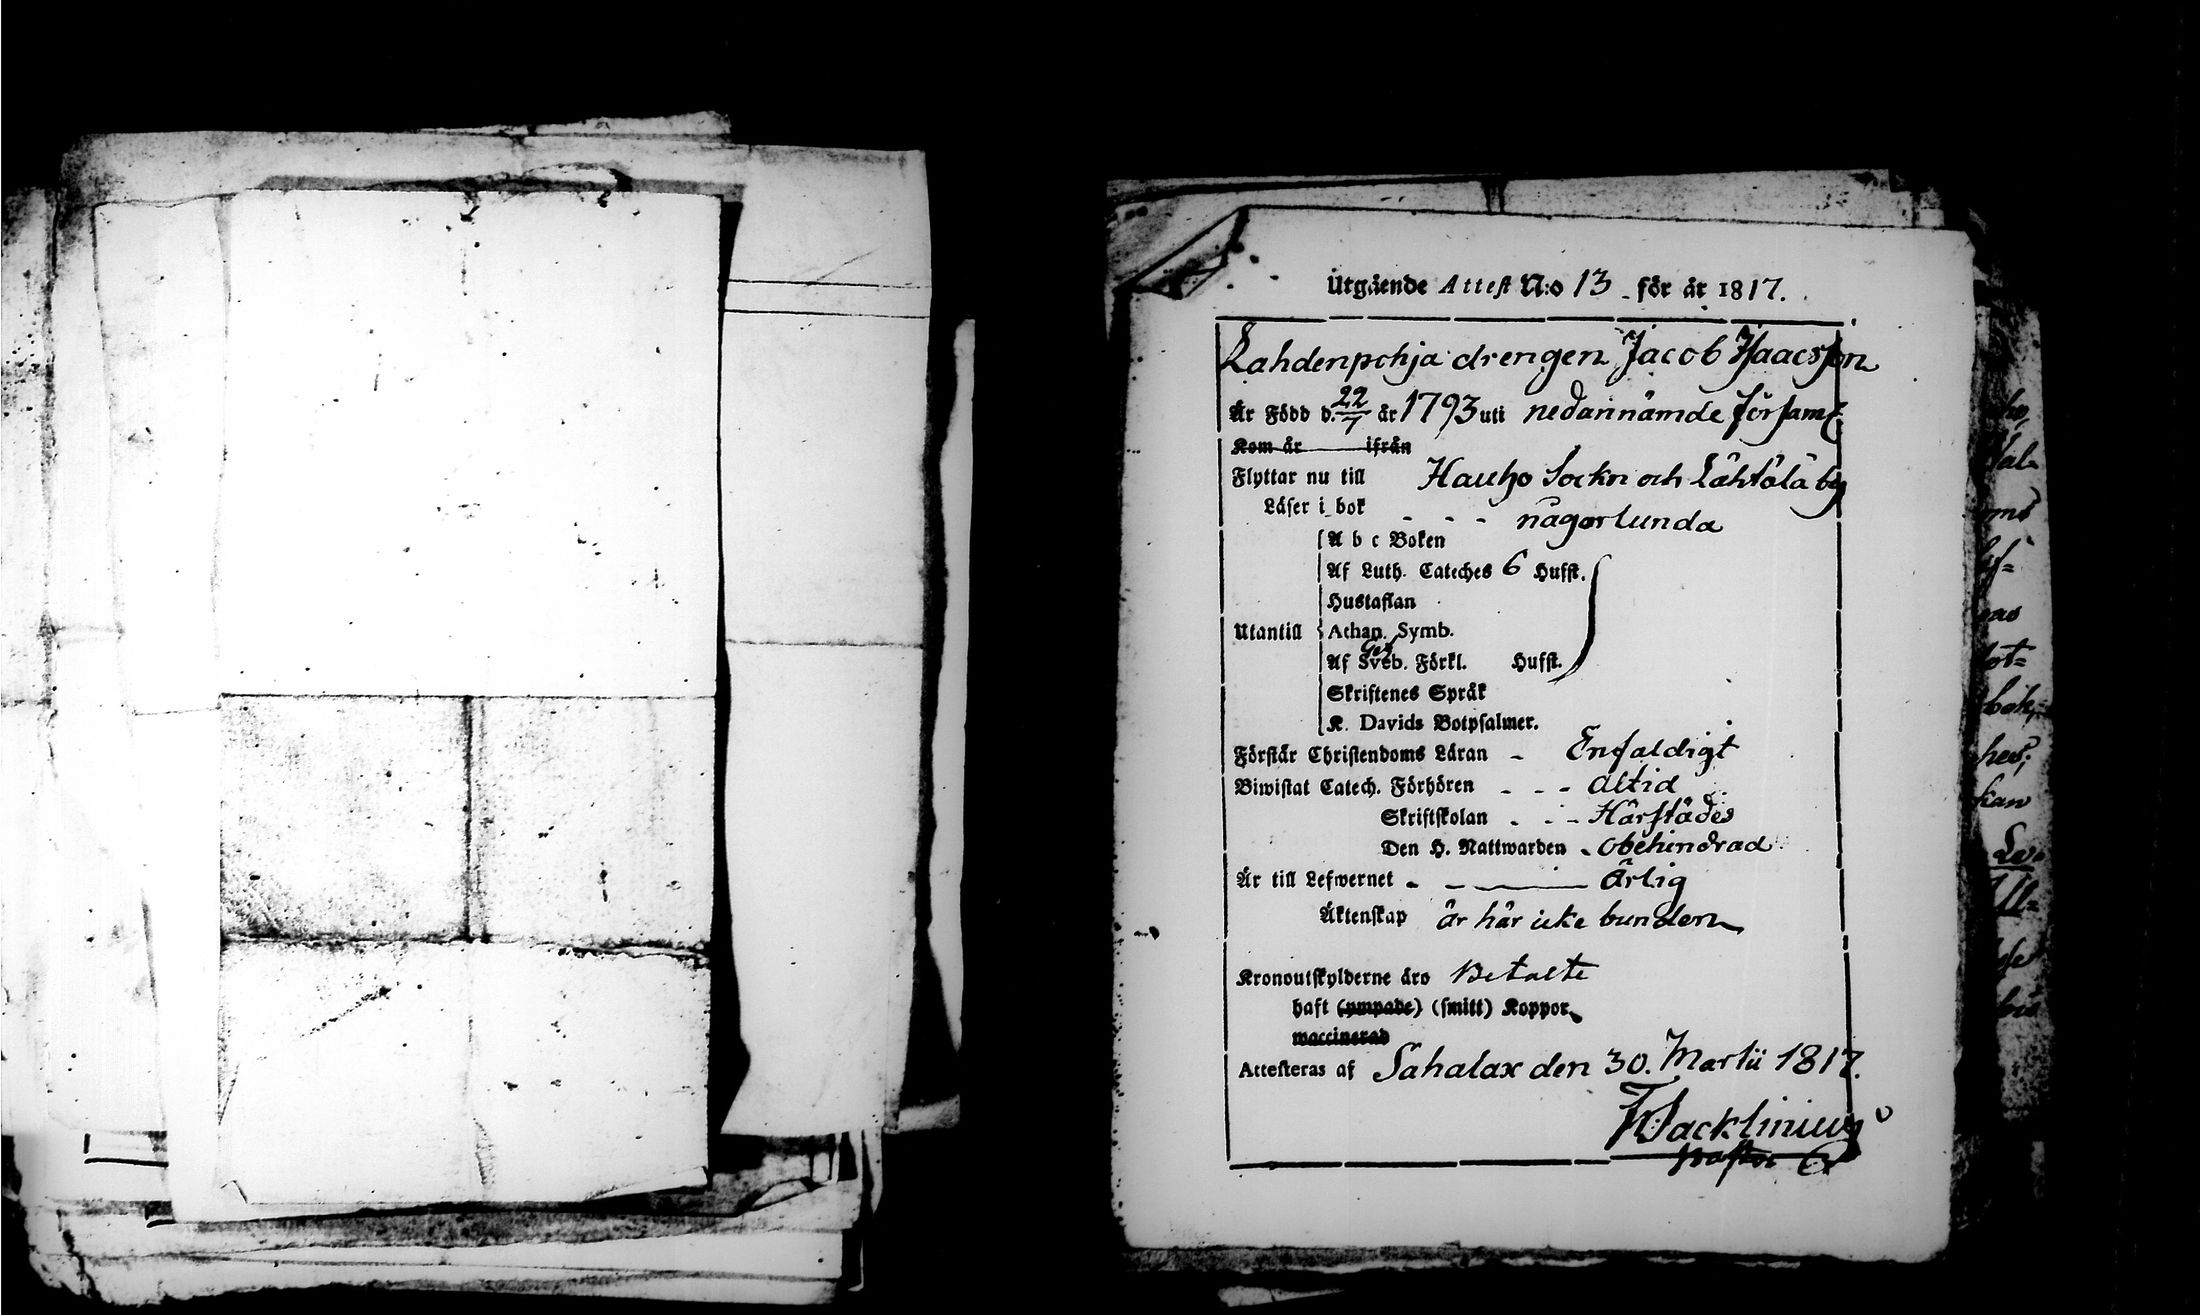 Utgående Attest N:o 13 för år 1817.
Lahdenpohja drengen Jacob Isaacsson
Är Född d. 22/7 år 1793 uti nedannämde församl
Kom år ifrån
Flyttar nu till Hauho Sockn och Lähtölä by
Läser i bok - - - någorlunda
A b c Boken
Af Luth. Cateches 6 Hufst.
Hustaflan
Utantill Athan. Symb.
Af Sveb. Förkl. Hufst.
Skriftenes Språk
K. Davids Botpsalmer.
Förstår Christendoms Läran - Enfaldigt
Biwistat Catech. Förhören - - - altid
Skriftskolan - - - Härstädes
Den H. Nattwarden - obehindrad
Är till Lefwernet - - Ärlig
Äktenskap är här icke bunden
Kronoutskylderne äro Betalte
haft (ympade) (smitt) Koppor
waccinerad
Attesteras af Sahalax den 30. Martii 1817.
Wacklinius
Pastor